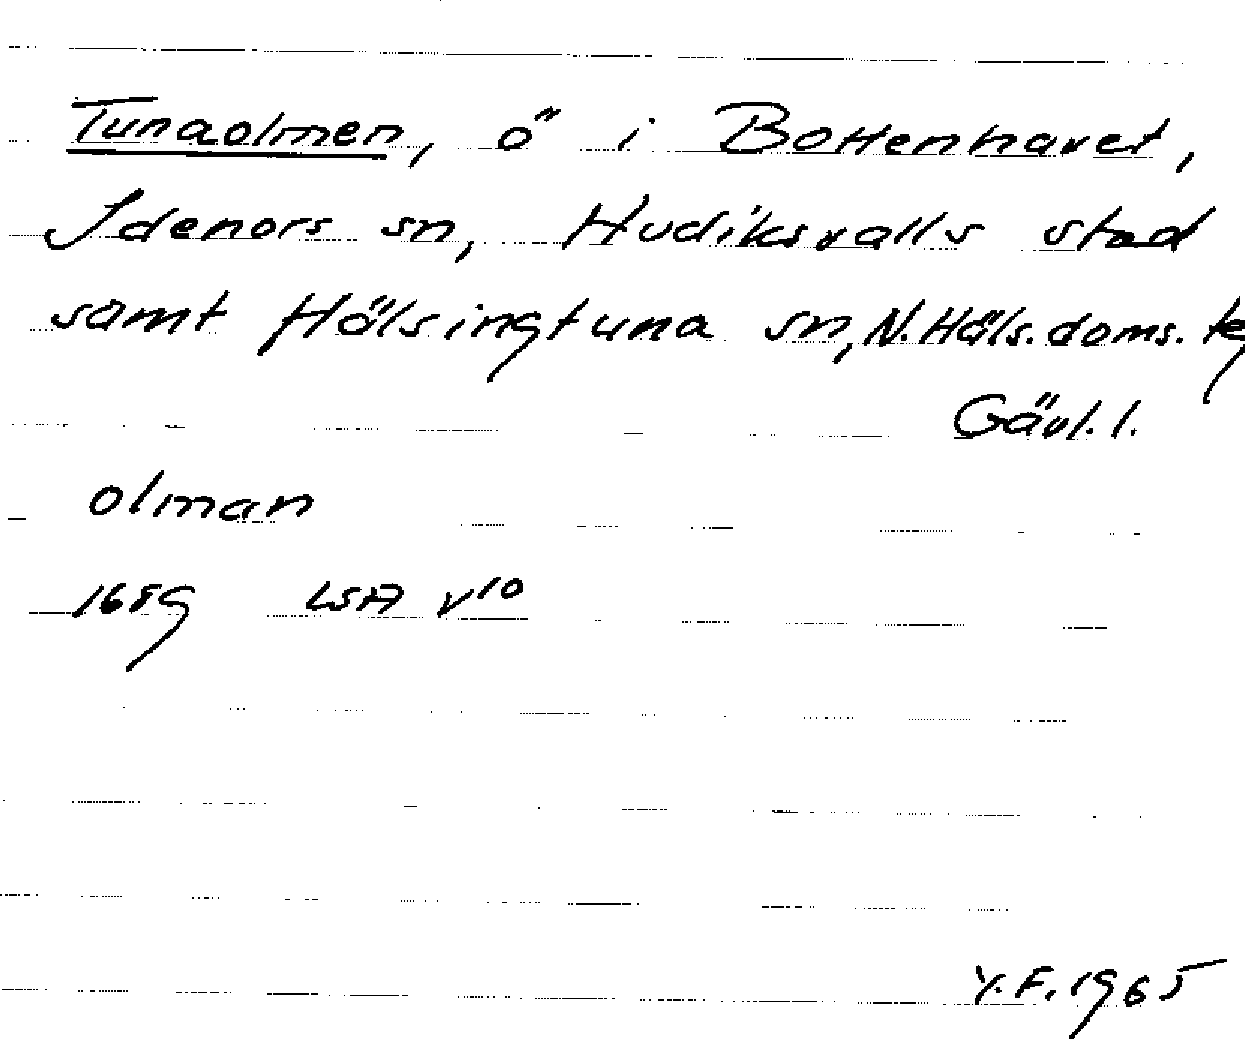 Tunaolmen, ö i Bottenhavet,
Idenors sn, Hudiksvalls stad
samt Hälsingtuna sn, N. Häls. doms. tg
Gävl. l.
olman
1689 LSA v10
Y.F. 1965